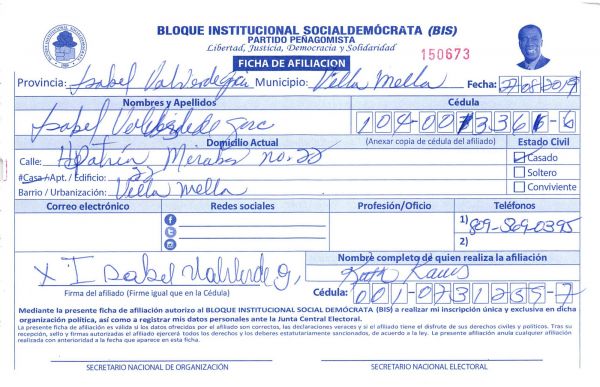 BLOQUE INSTITUCIONAL SOCIALDEMÓCRATA (BIS)
PARTIDO PEÑAGOMISTA
Libertad, Justicia, Democracia y Solidaridad
FICHA DE AFILIACION
150673
Provincia: Isabel Valverde Municipio: Villa Mella Fecha:
Nombres y Apellidos
Cédula
Isabel
Domicilio Actual
(Anexar copia de cédula del afiliado)
Estado Civil
Calle: no. 22
Casado
#Casa/Apt. / Edificio: 22
Soltero
Barrio / Urbanización: Villa Mella
Conviviente
Correo electrónico
Redes sociales
Profesión/Oficio
Teléfonos
1) 809-569-0395
2)
X Isabel Valverde g,
Nombre completo de quien realiza la afiliación
Firma del afiliado (Firme igual que en la Cédula)
Cédula: 001-0731259-7
Mediante la presente ficha de afiliación autorizo al BLOQUE INSTITUCIONAL SOCIAL DEMÓCRATA (BIS) a realizar mi inscripción única y exclusiva en dicha
organización política, así como a registrar mis datos personales ante la Junta Central Electoral.
La presente ficha de afiliación es válida si los datos ofrecidos por el afiliado son correctos, las declaraciones veraces y si el afiliado tiene el disfrute de sus derechos civiles y políticos. Tras su
recepción, sello y firmas autorizadas el afiliado ejercerá todos los derechos y los deberes estatutariamente sancionados, de acuerdo a la ley. La presente afiliación anula cualquier afiliación
realizada con anterioridad a la fecha que aparece en esta ficha.
SECRETARIO NACIONAL DE ORGANIZACIÓN
SECRETARIO NACIONAL ELECTORAL